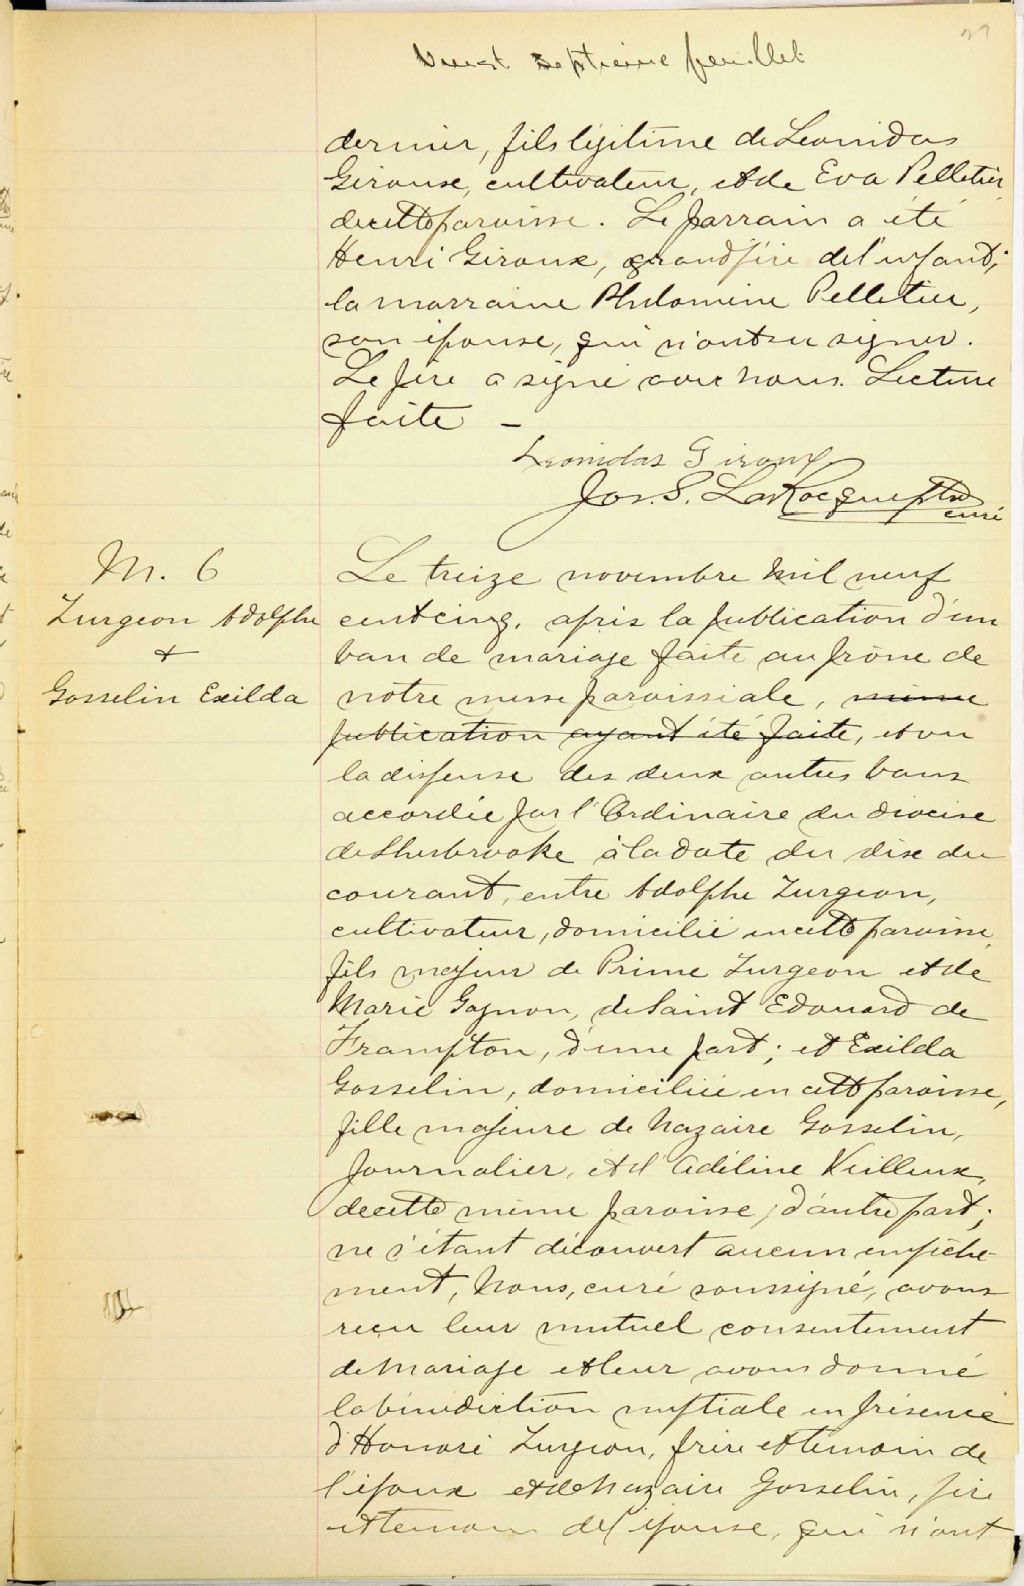 27
Vingt septième feuillet
dernier, fils légitime de Léonidas
Giroux, cultivateur, et de Eva Pelletier
de cette paroisse. Le parrain a été
Henri Giroux, grand père de l'enfant;
la marraine Philomène Pelletier,
son épouse, qui n'ont su signer.
Le père a signé avec nous. Lecture
faite –
Leonidas Giroux
Jos. S. LaRocque Ptre
curé
M. 6
Turgeon Adolphe
+
Gosselin Exilda
Le treize novembre mil neuf
cent cinq, après la publication d'un
ban de mariage faite au prône de
notre messe paroissiale, même
publication ayant été faite, et vu
la dispense des deux autres bans
accordée par l'Ordinaire du diocèse
de Sherbrooke à la date du dix du
courant, entre Adolphe Turgeon,
cultivateur, domicilié en cette paroisse,
fils majeur de Prime Turgeon et de
Marie Gagnon, de Saint Edouard de
Frampton, d'une part; et Exilda
Gosselin, domiciliée en cette paroisse,
fille majeure de Nazaire Gosselin,
journalier, et d'Adéline Veilleux,
de cette même paroisse, d'autre part;
ne s'étant découvert aucun empêche-
ment, Nous, curé soussigné, avons
reçu leur mutuel consentement
de mariage et leur avons donné
la bénédiction nuptiale en présence
d'Honoré Turgeon, frère et témoin de
l'époux et de Nazaire Gosselin, père
et témoin de l'épouse, qui n'ont